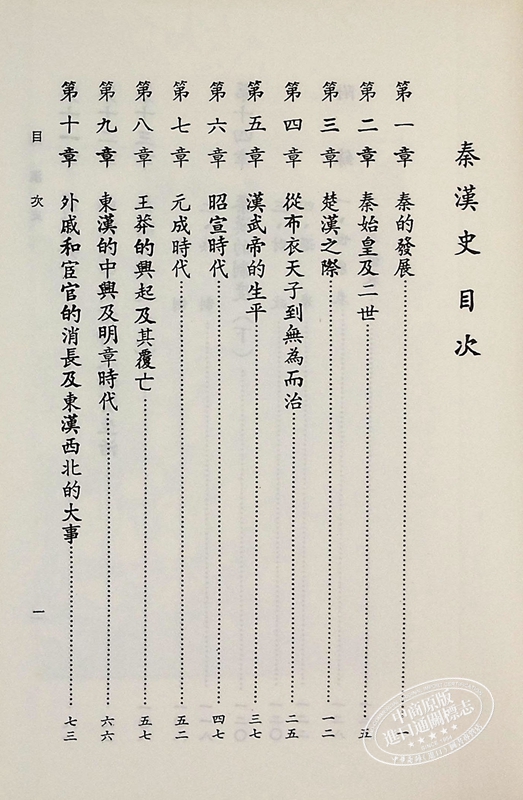 秦漢史 目次
第一章 秦的發展………一
第二章 秦始皇及二世………五
第三章 楚漢之際………一二
第四章 從布衣天子到無為而治………二五
第五章 漢武帝的生平………三七
第六章 昭宣時代………四七
第七章 元成時代………五二
第八章 王莽的興起及其覆亡………五七
第九章 東漢的中興及明章時代………六六
第十章 外戚和宦官的消長及東漢西北的大事………七三
目次 一
中商原版
進口通關標志